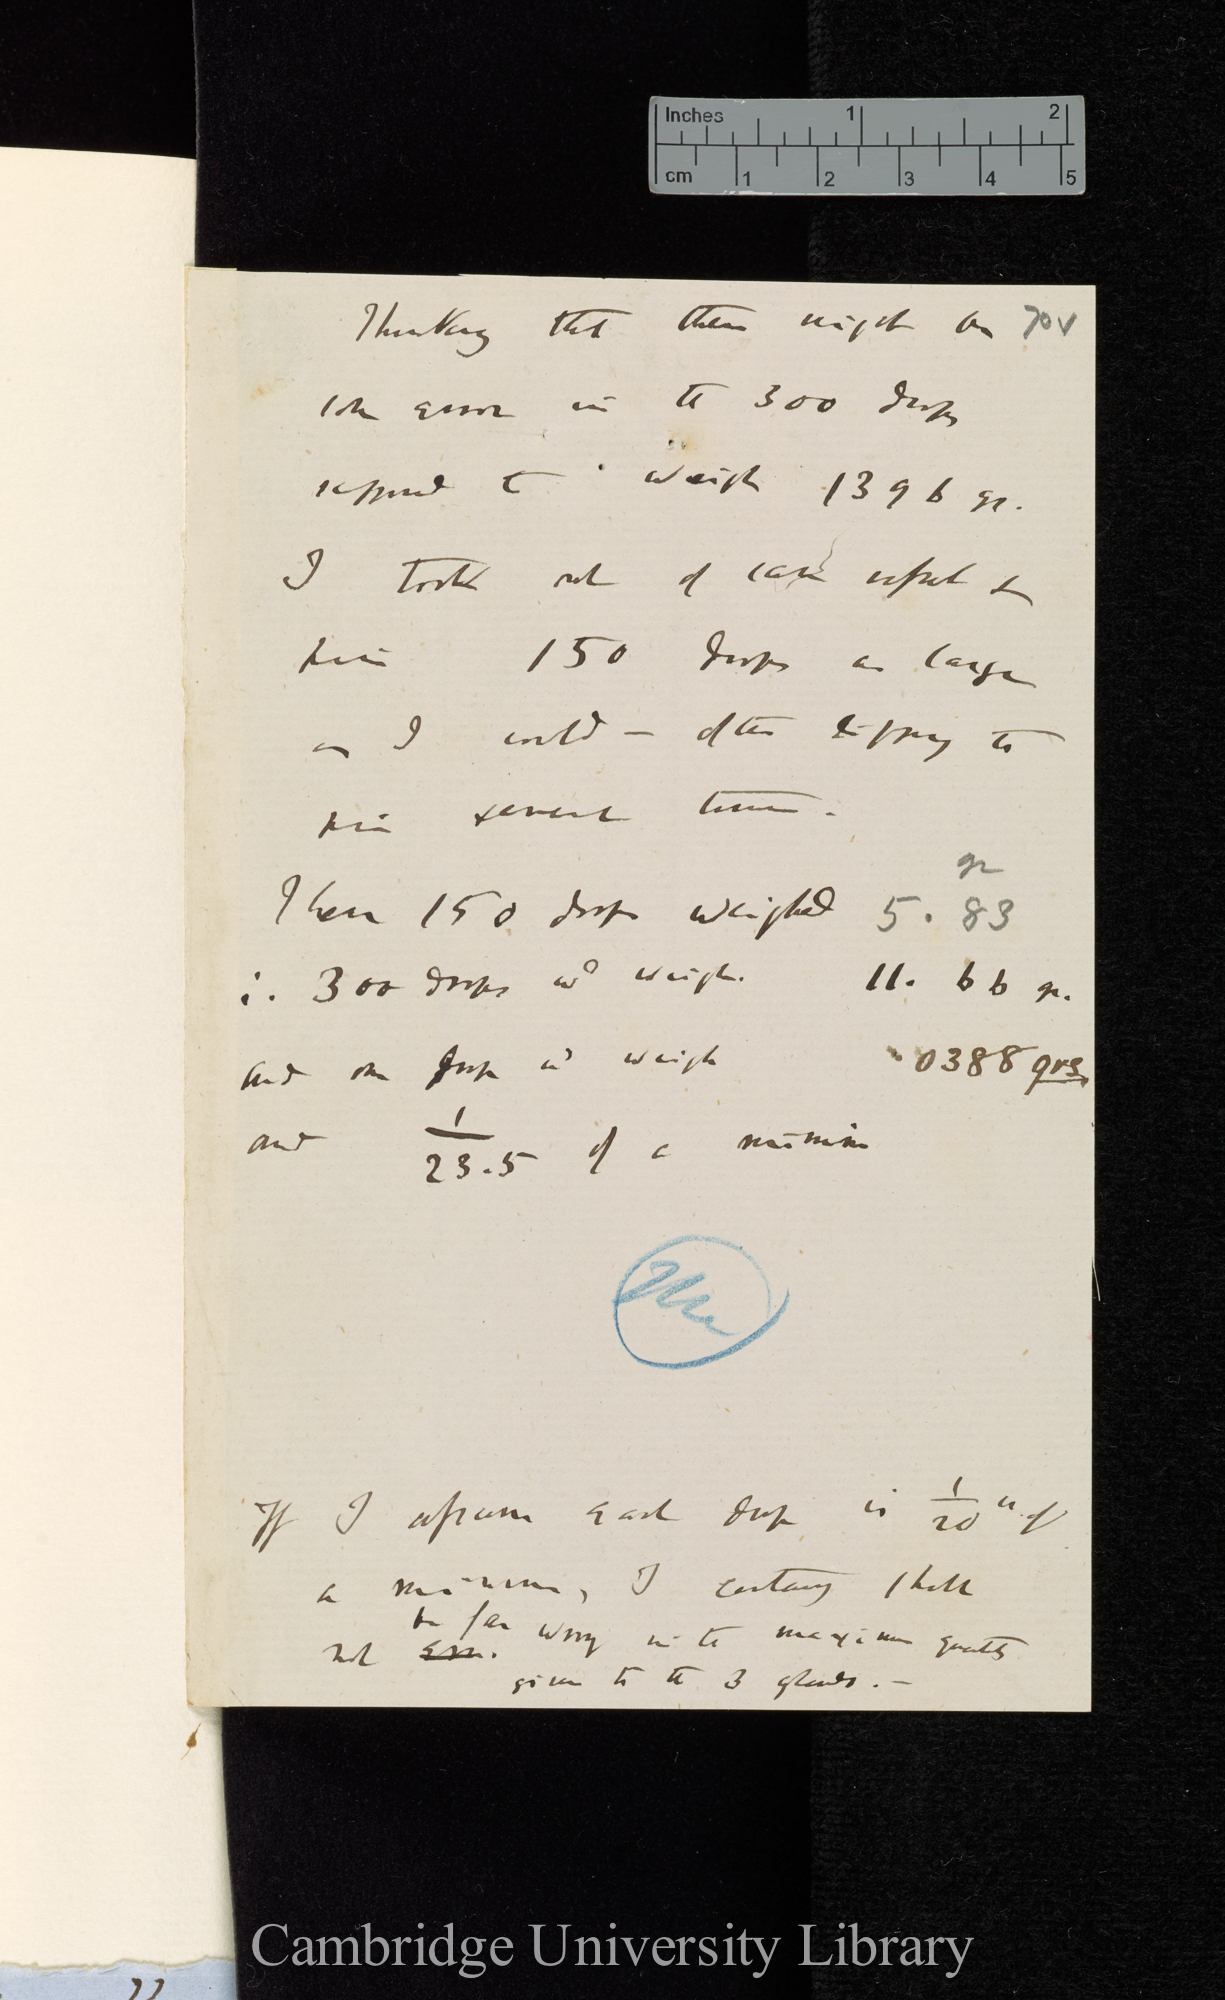 Inches 1 2
cm 1 2 3 4 5
Thinking that there might be 70v
some error in the 300 drops
supposed to weigh 1396 gr.
I took out of same vessel &
pin 150 drops as large
as I could — often dipping the
pin several times.
gr
These 150 drops weighed 5.83
∴ 300 drops wd weigh. 11.66 gr.
and one drop wd weigh .0388 grs.
and 1/23.5 of a minim
If I assume each drop is 1/20th of
a minim, I certainly shall
be far wrong in the maximum quantity
not err.
given to the 3 glands. —
Cambridge University Library